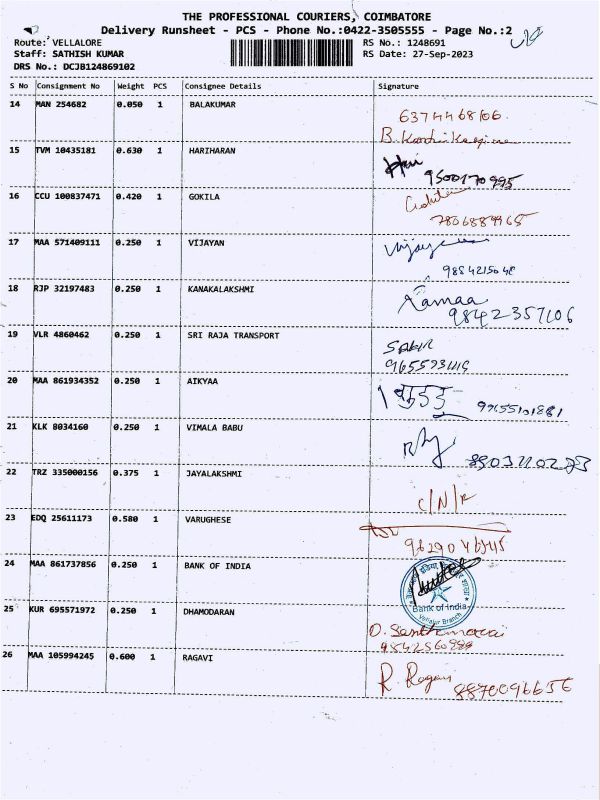 THE PROFESSIONAL COURIERS, COIMBATORE
Delivery Runsheet - PCS - Phone No.:0422-3505555 - Page No.:2
Route: VELLALORE RS No.: 1248691
Staff: SATHISH KUMAR RS Date: 27-Sep-2023
DRS No.: DCJB124869102
S No Consignment No Weight PCS Consignee Details Signature
14 MAN 254682 0.050 1 BALAKUMAR
15 TVM 10435181 0.630 1 HARIHARAN
9500170995
16 CCU 100837471 0.420 1 GOKILA
17 MAA 571409111 0.250 1 VIJAYAN
18 RJP 32197483 0.250 1 KANAKALAKSHMI
Ramaa
9842357106
19 VLR 4860462 0.250 1 SRI RAJA TRANSPORT
20 MAA 861934352 0.250 1 AIKYAA
21 KLK 8034160 0.250 1 VIMALA BABU
22 TRZ 335000156 0.375 1 JAYALAKSHMI
C/N/R
23 EDQ 25611173 0.580 1 VARUGHESE
24 MAA 861737856 0.250 1 BANK OF INDIA
Bank of India
25 KUR 695571972 0.250 1 DHAMODARAN
26 MAA 105994245 0.600 1 RAGAVI
R. Ragavi
8870096656